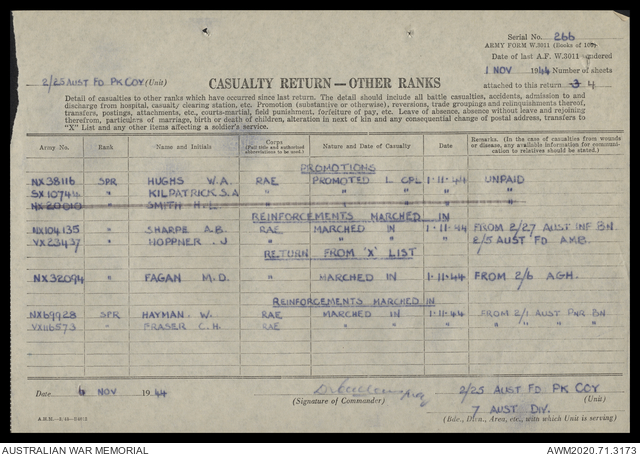 Serial No. 266
ARMY FORM W.3011 (Books of 100)
Date of last A.F. W.3011 rendered
2/25 AUST FD PK COY (Unit) 1 NOV 1944 Number of sheets
CASUALTY RETURN—OTHER RANKS attached to this return 3 4
Detail of casualties to other ranks which have occurred since last return. The detail should include all battle casualties, accidents, admission to and
discharge from hospital, casualty clearing station, etc. Promotion (substantive or otherwise), reversions, trade groupings and relinquishments thereof,
transfers, postings, attachments, etc., courts-martial, field punishment, forfeiture of pay, etc. Leave of absence, absence without leave and rejoining
therefrom, particulars of marriage, birth or death of children, alteration in next of kin and any consequential change of postal address, transfers to
"X" List and any other items affecting a soldier's service.
Army No. Rank Name and Initials Corps (Put title and authorized abbreviations to be used.) Nature and Date of Casualty Date Remarks. (In the case of casualties from wounds or disease, any available information for communication to relatives should be stated.)
PROMOTIONS
NX38116 SPR HUGHS W.A. RAE PROMOTED L CPL 1·11·44 UNPAID
SX10744 " KILPATRICK S.A " " " " "
NX20010 " SMITH H.L. " " " " "
REINFORCEMENTS MARCHED IN
NX104135 " SHARPE A.B. RAE MARCHED IN 1·11·44 FROM 2/27 AUST INF BN
VX23437 " HOPPNER . J " " " " 2/5 AUST FD AMB.
RETURN FROM 'X' LIST
NX32094 " FAGAN M.D. " MARCHED IN 1·11·44 FROM 2/6 AGH.
REINFORCEMENTS MARCHED IN
NX69928 SPR HAYMAN . W. RAE MARCHED IN 1·11·44 FROM 2/1 AUST PNR BN
VX116573 " FRASER C.H. RAE " " " " " "
Date 4 NOV 1944 2/25 AUST FD PK COY
(Signature of Commander) (Unit)
7 AUST DIV.
(Bde., Divn., Area, etc., with which Unit is serving)
AUSTRALIAN WAR MEMORIAL AWM2020.71.3173